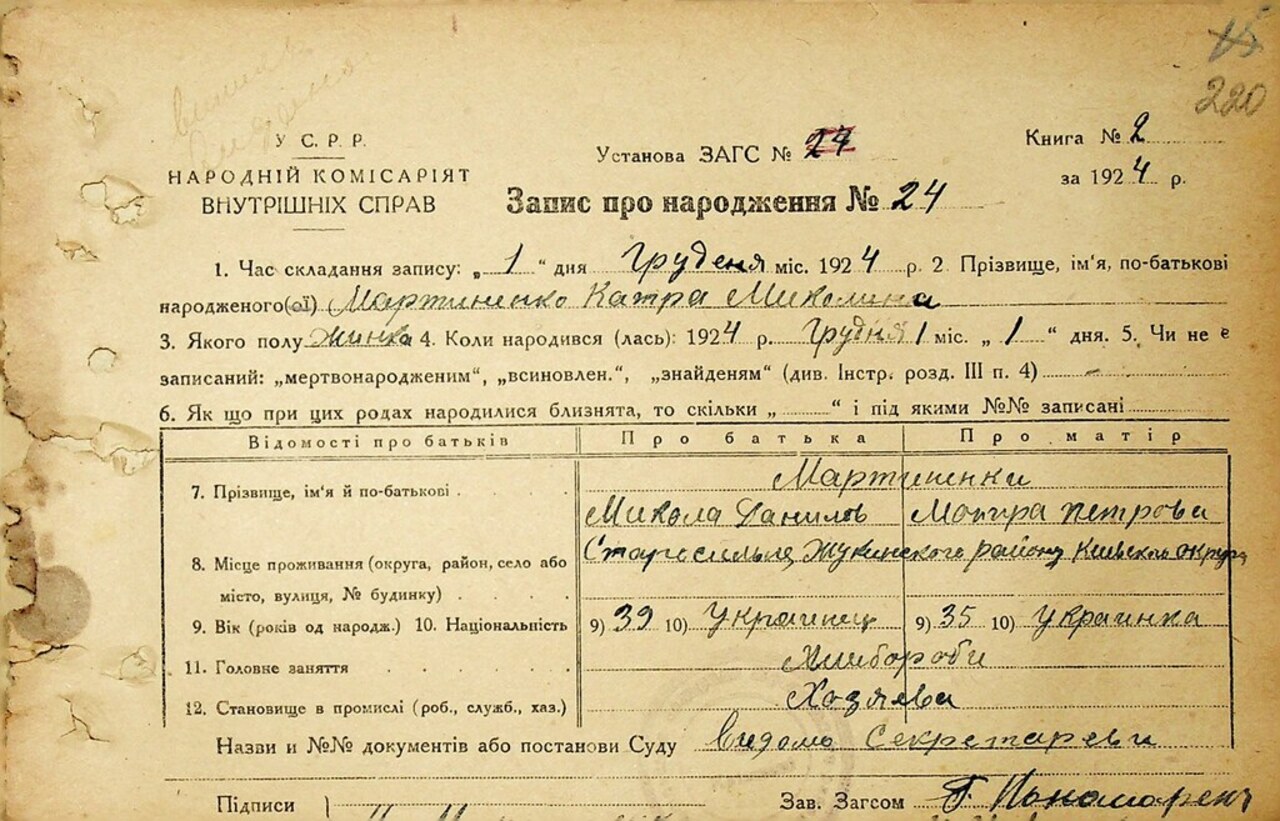 220
У С. Р. Р.
НАРОДНІЙ КОМІСАРІЯТ
ВНУТРІШНІХ СПРАВ
Установа ЗАГС № 24
Книга № 2
за 1924 р.
Запис про народження № 24
1. Час складання запису: „ 1 “ дня Грудня міс. 1924 р. 2. Прізвище, ім'я, по-батькові
народженого(ої) Мартиненко Катра Миколина
3. Якого полу жинка 4. Коли народився (лась): 1924 р. Грудня 1 міс. „ 1 “ дня. 5. Чи не є
записаний: „мертвонародженим“, „всиновлен.“, „знайденям“ (див. Інстр. розд. III п. 4) -
6. Як що при цих родах народилися близнята, то скільки „ “ і під якими №№ записані
Відомості про батьків Про батька Про матір
7. Прізвище, ім'я й по-батькові Мартиненки
Микола Данилов Мотра Петрова
8. Місце проживання (округа, район, село або Старосилья Жукинского району Киевского округа
місто, вулиця, № будинку)
9. Вік (років од народж.) 10. Національність 9) 39 10) Украинец 9) 35 10) Украинка
11. Головне заняття Хлибороби
12. Становище в промислі (роб., служб., хаз.) Хозяева
Назви и №№ документів або постанови Суду Видомо Секретареви
Підписи Зав. Загсом Г. Пономаренко